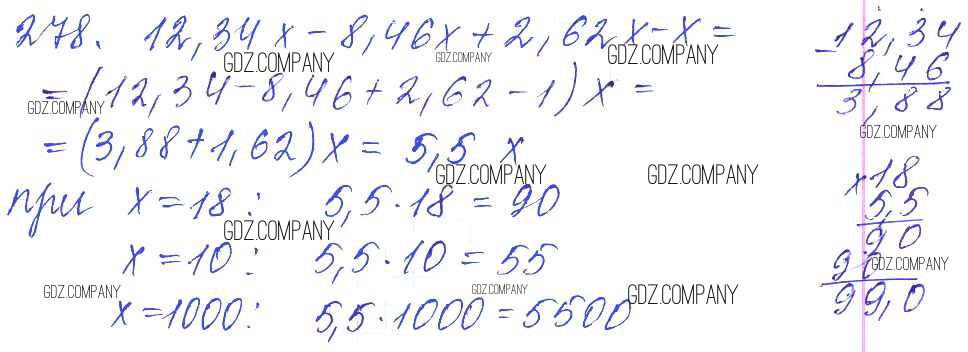 278. 12,34x - 8,46x + 2,62x - x =
= (12,34 - 8,46 + 2,62 - 1) x =
= (3,88 + 1,62) x = 5,5 x
при x = 18 : 5,5 · 18 = 90
x = 10 : 5,5 · 10 = 55
x = 1000 : 5,5 · 1000 = 5500
- 12,34
8,46
3,88
x 18
5,5
90
90
99,0
GDZ.COMPANY
GDZ.COMPANY
GDZ.COMPANY
GDZ.COMPANY
GDZ.COMPANY
GDZ.COMPANY
GDZ.COMPANY
GDZ.COMPANY
GDZ.COMPANY
GDZ.COMPANY
GDZ.COMPANY
GDZ.COMPANY